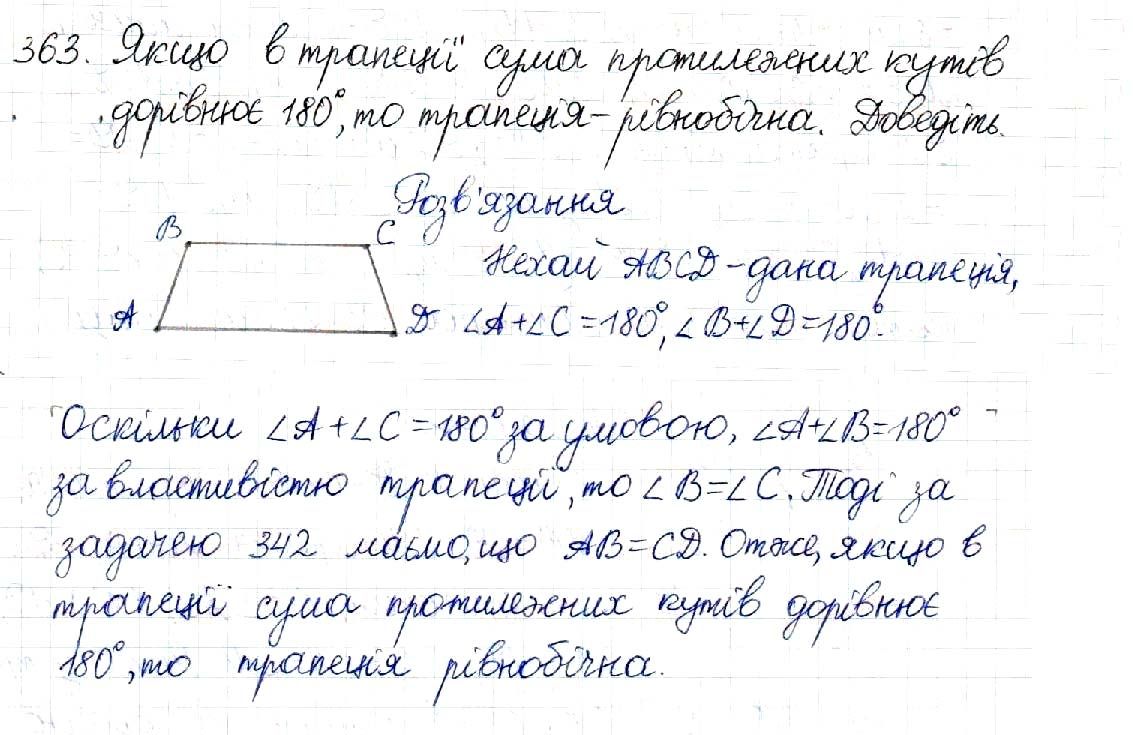 363. Якщо в трапеції сума протилежних кутів
дорівнює 180°, то трапеція - рівнобічна. Доведіть.
Розв'язання
B
C
Нехай ABCD - дана трапеція,
A
D
∠A+∠C=180°, ∠B+∠D=180°.
Оскільки ∠A+∠C=180° за умовою, ∠A+∠B=180°
за властивістю трапеції, то ∠B=∠C. Тоді за
задачею 342 маємо, що AB=CD. Отже, якщо в
трапеції сума протилежних кутів дорівнює
180°, то трапеція рівнобічна.